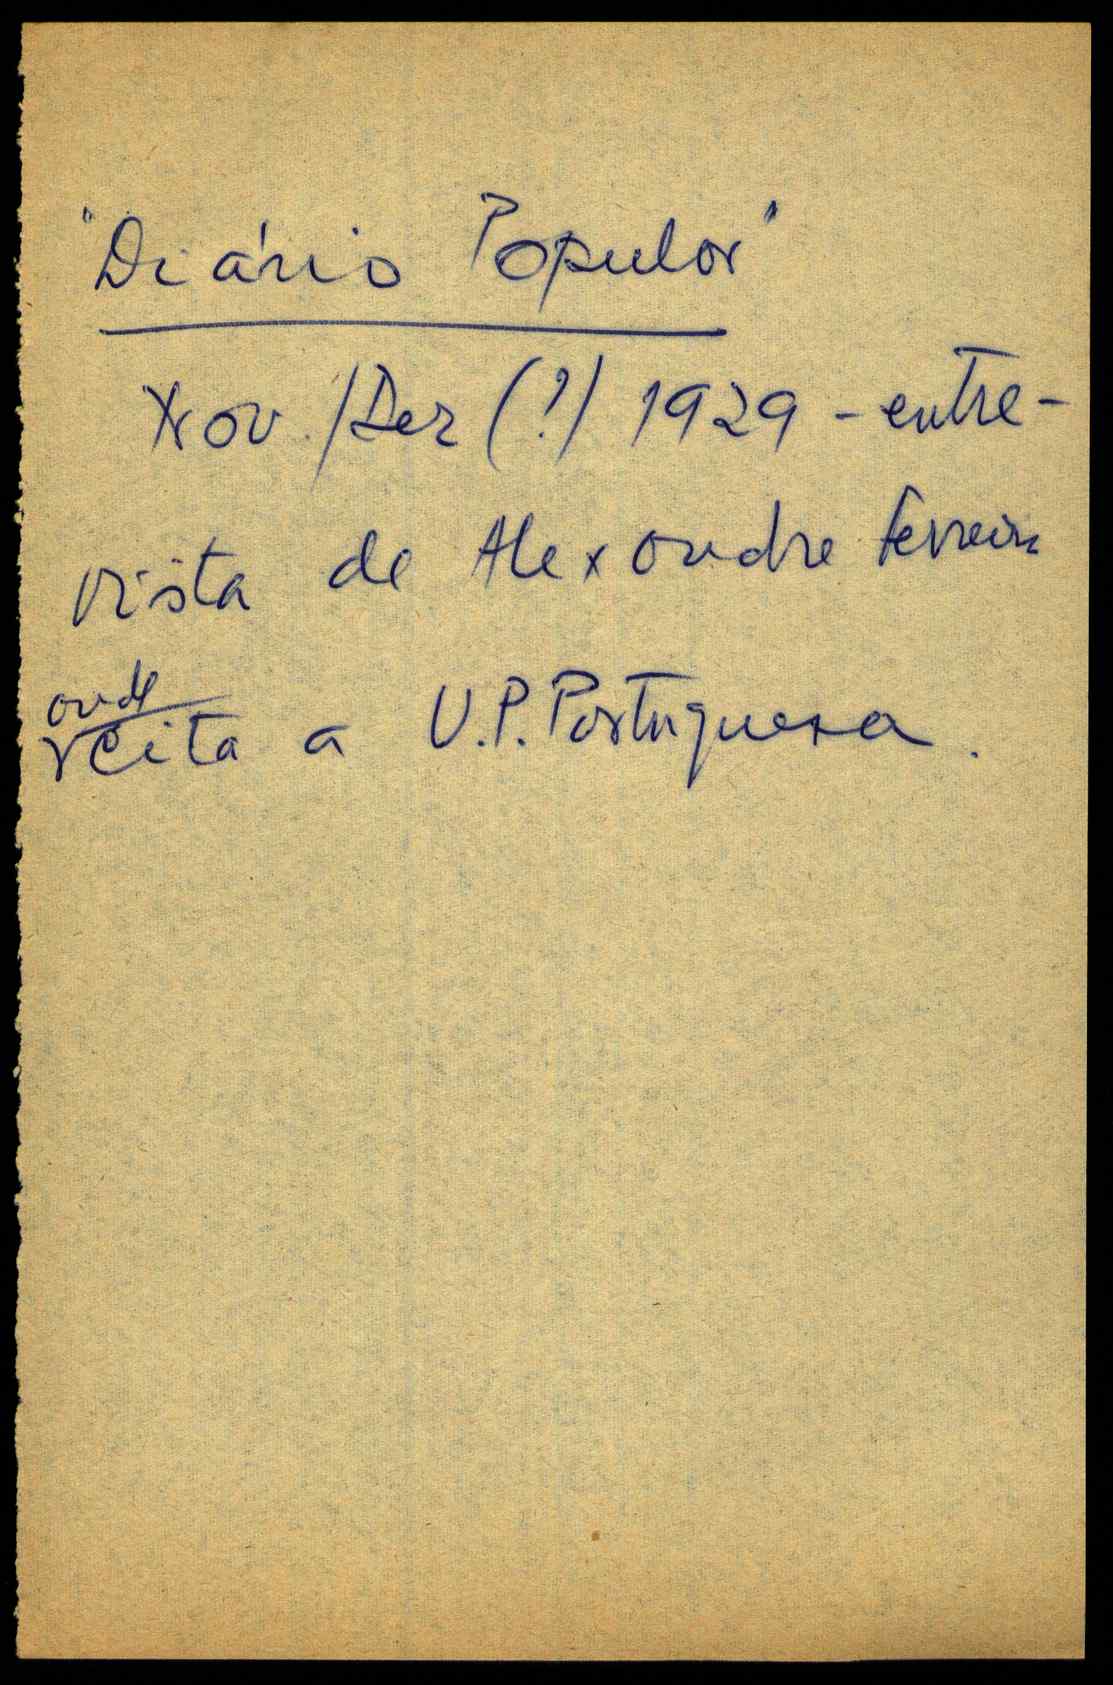 "Diário Popular"
Nov./Dez (?) 1929 - entre-
vista de Alexandre Ferreira
onde
cita a U.P. Portuguesa.